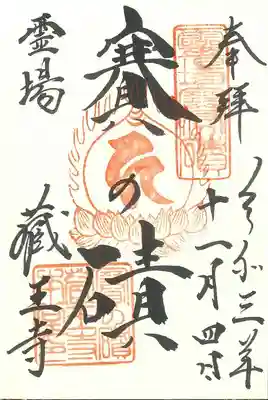 奉拝
三年
十一月四日
賽の磧
霊場
藏王寺